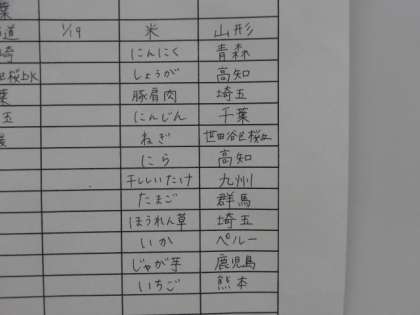 葉
道 1/19 米 山形
崎 にんにく 青森
しょうが 高知
葉 豚肩肉 埼玉
玉 にんじん 千葉
ねぎ 世田谷区桜丘
にら 高知
干ししいたけ 九州
たまご 群馬
ほうれん草 埼玉
いか ペルー
じゃが芋 鹿児島
いちご 熊本